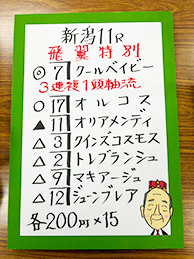 新潟11R
飛翼特別
◎7クールベイビー
3連複1頭軸流
○17オルコス
▲11オリアメンディ
△3クインズコスモス
△2トレブランシュ
△9マキアージュ
△12ジューンブレア
各200円×15